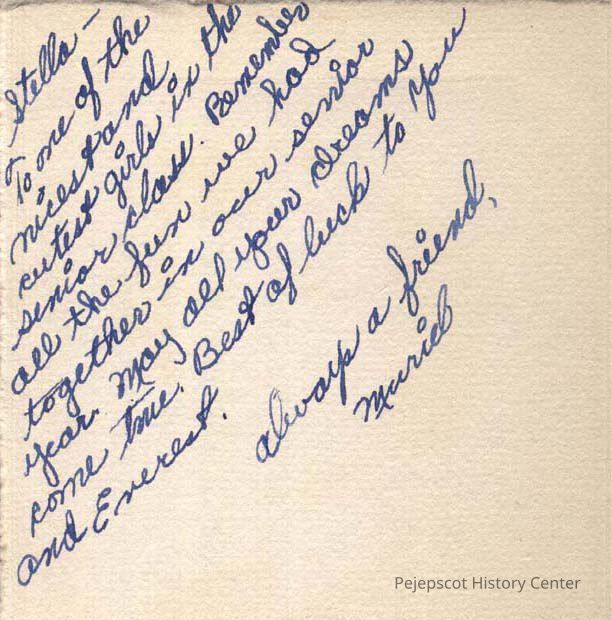 Stella -
To one of the
nicest and
cutest girls in the
senior class. Remember
all the fun we had
together in our senior
year. May all your dreams
come true. Best of luck to you
and Everest.
Always a friend,
Muriel
Pejepscot History Center